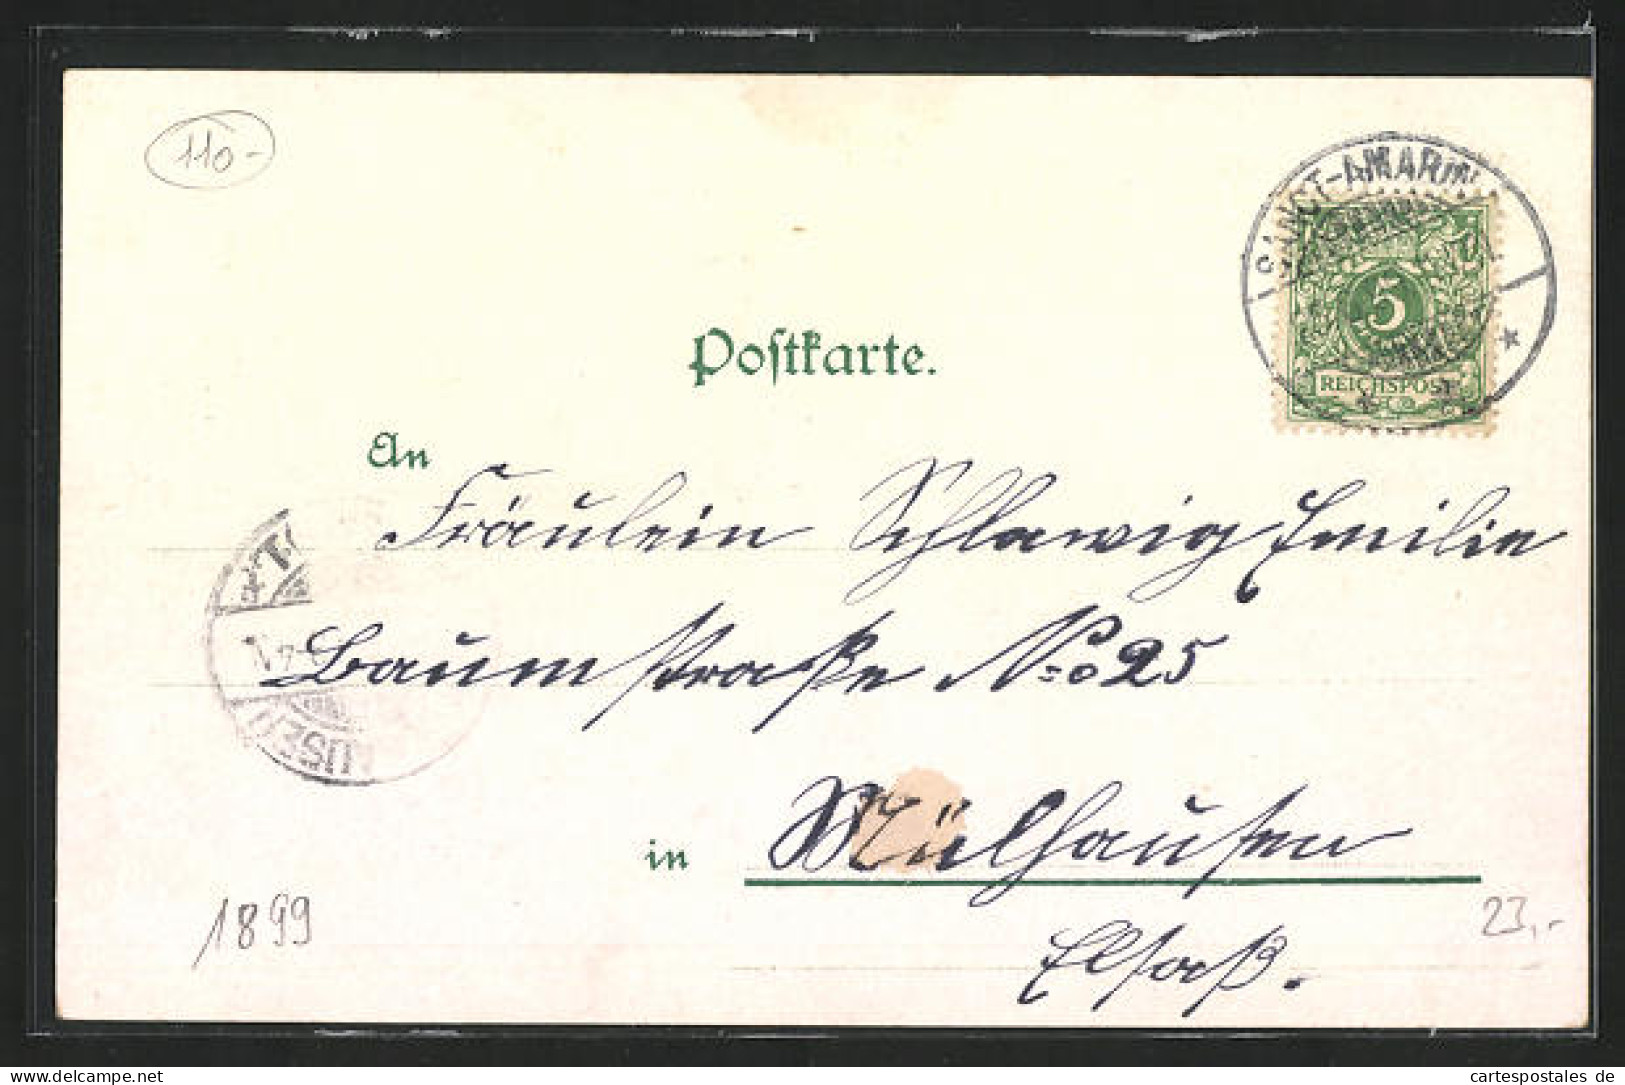 110-
SANCT-AMARIN
5
REICHSPOST
Postkarte.
An
Fräulein Schlawig Emilie
Baumstraße No 25
in Mülhausen
Elsaß.
1899
23,-
ans-62786
cartespostales de